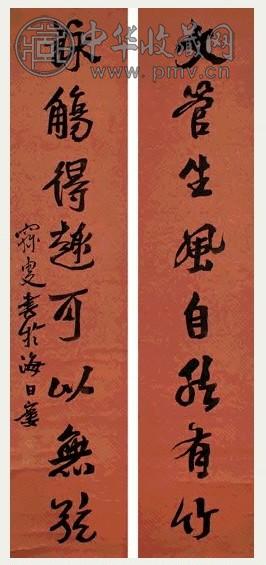 中华收藏网
www.pmv.cn
管生風自然有竹
詠觴得趣可以無弦
寐叟書於海日廔